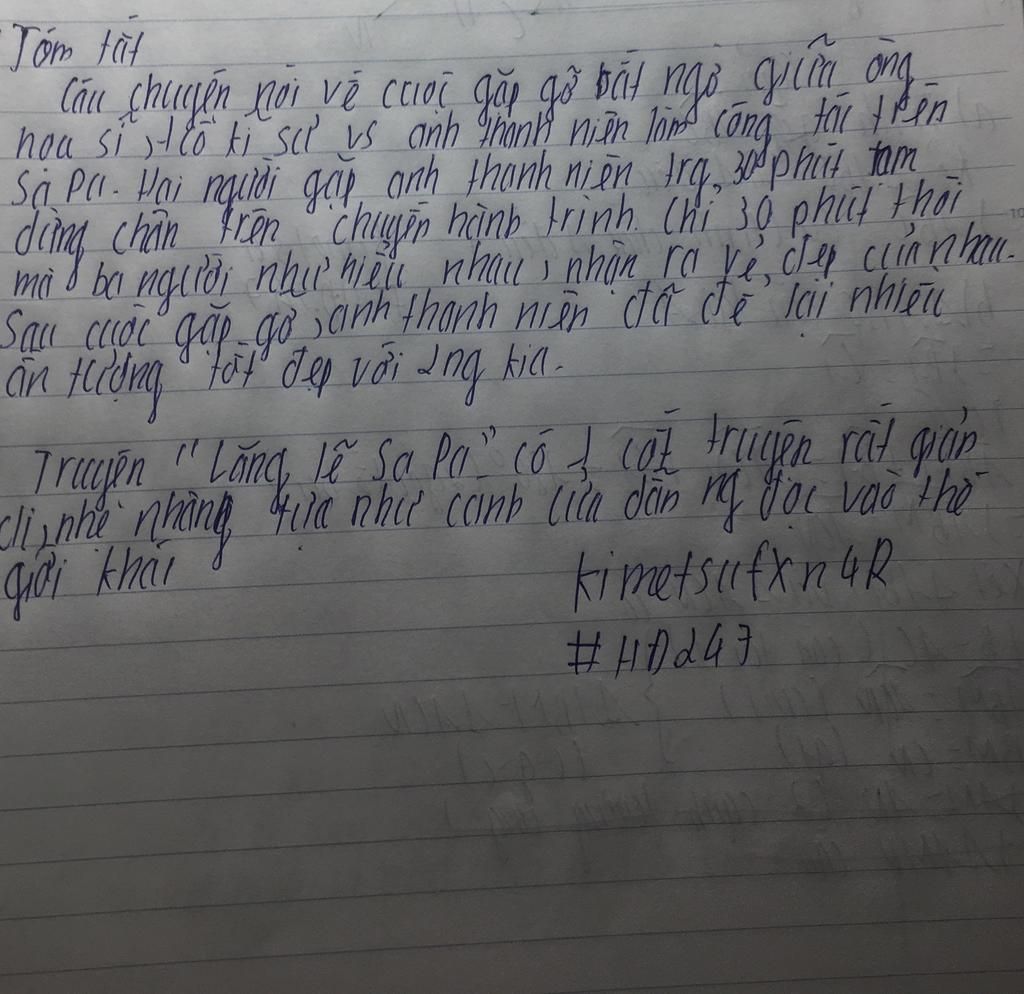 Tóm tắt
Câu chuyện nói về cuộc gặp gỡ bất ngờ giữa ông
họa sĩ, cô kĩ sư vs anh thanh niên làm công tác trên
Sa Pa. Hai người gặp anh thanh niên trg 30 phút tạm
dừng chân trên chuyến hành trình. Chỉ 30 phút thôi
mà ba người như hiểu nhau, nhận ra vẻ đẹp của nhau.
Sau cuộc gặp gỡ, anh thanh niên đã để lại nhiều
ấn tượng tốt đẹp với 2ng kia.
Truyện "Lặng lẽ Sa Pa" có 1 cốt truyện rất giản
dị, nhẹ nhàng tựa như cánh cửa dẫn ng đọc vào thế
giới khác
kimetsufxn4R
#HD247